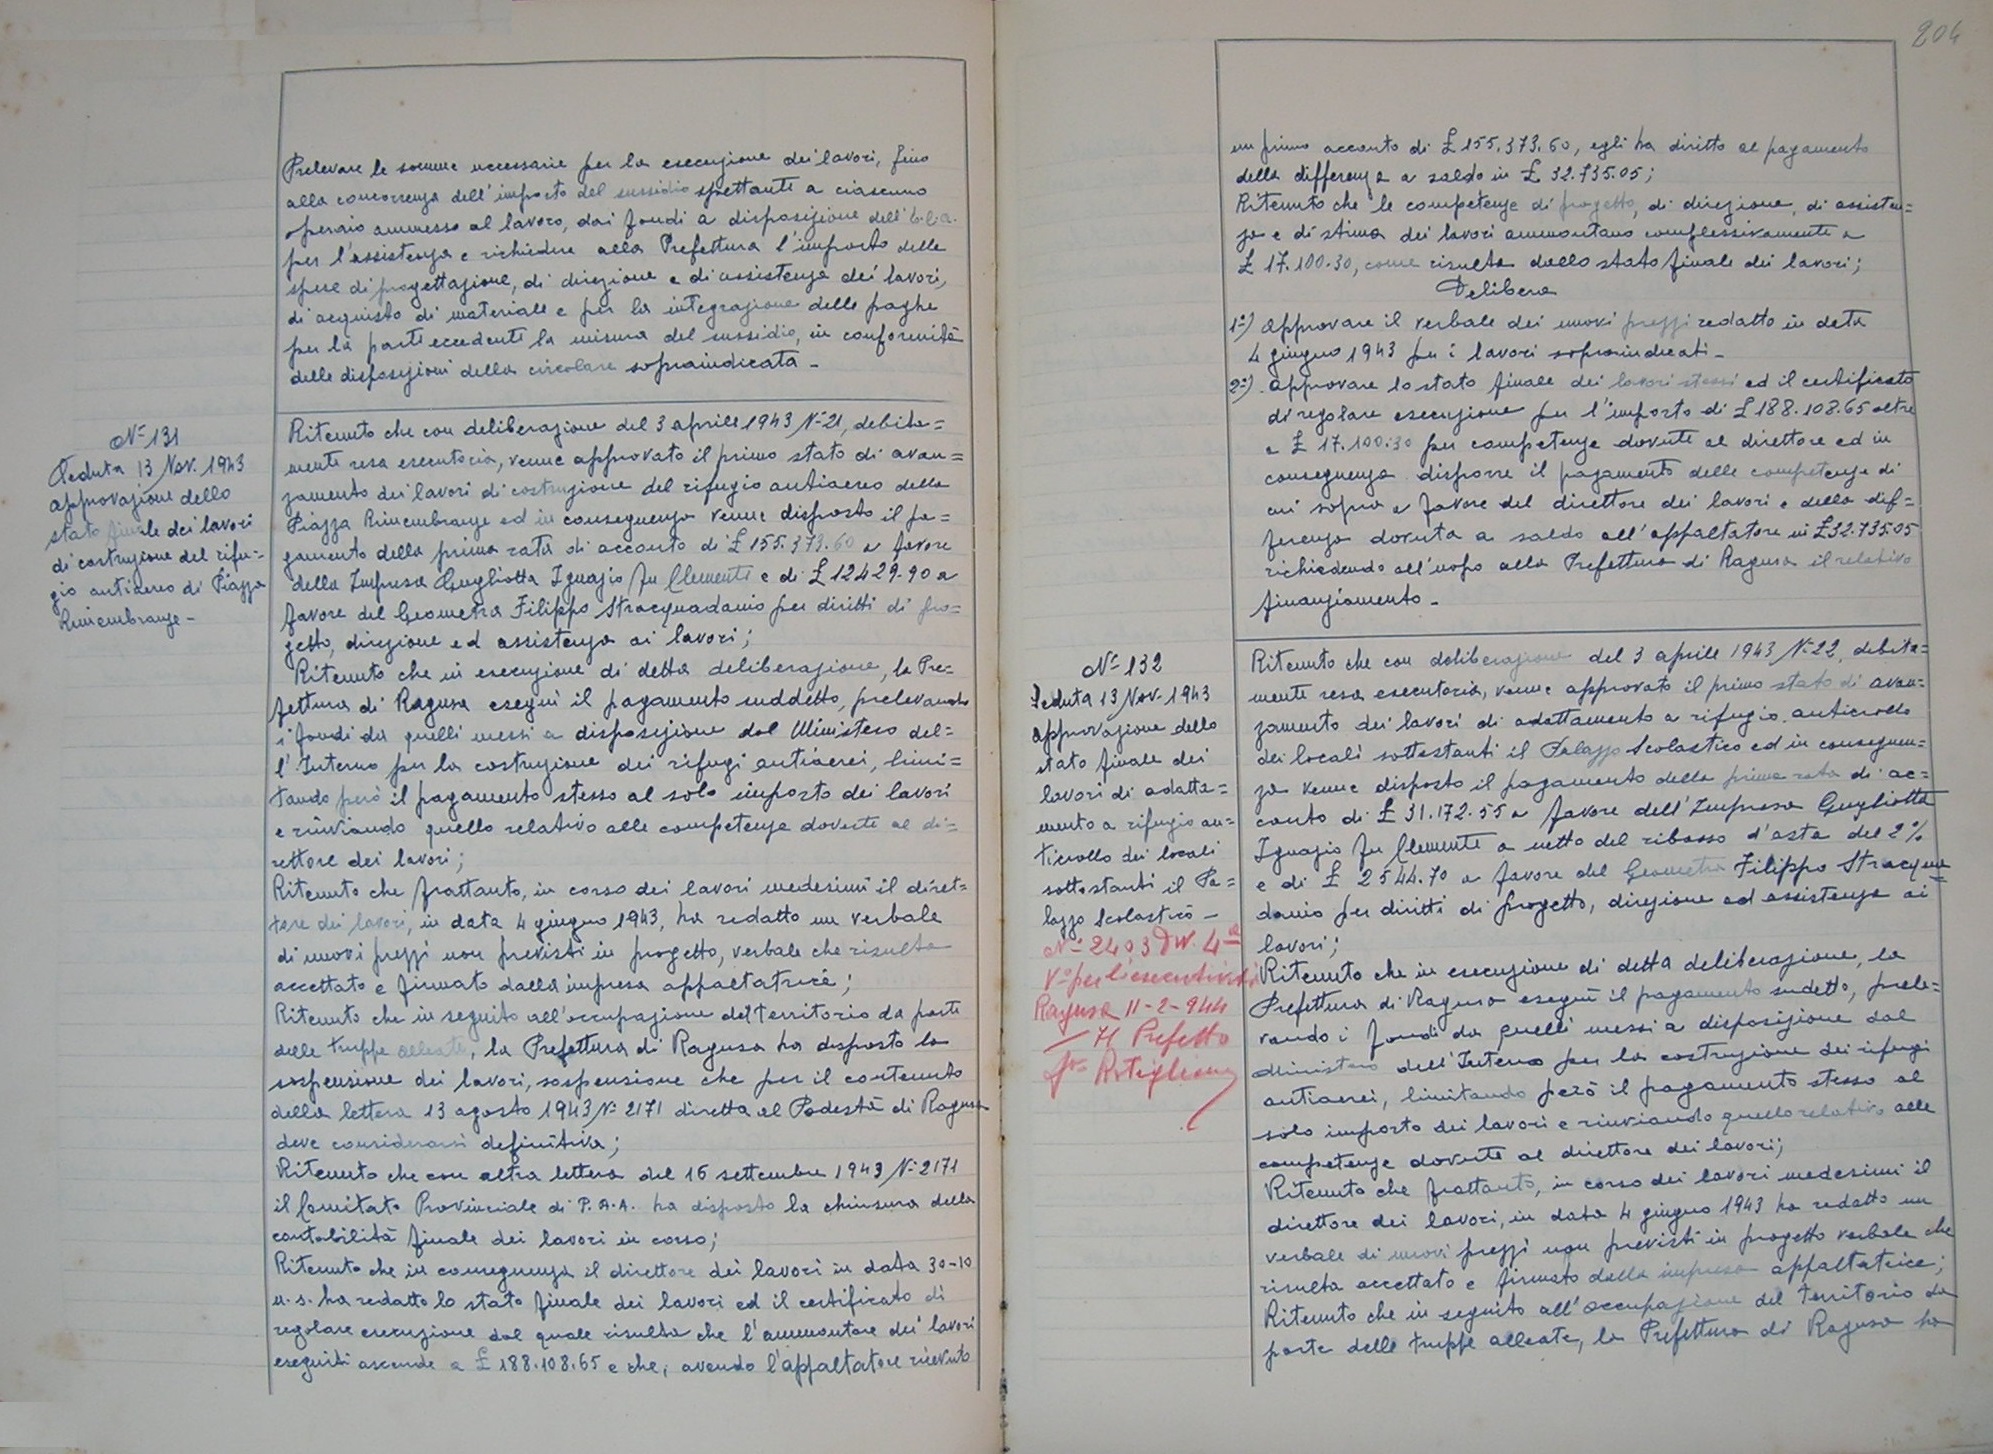 Prelevare le somme necessarie per la esecuzione dei lavori, fino
alla concorrenza dell'importo del sussidio spettante a ciascuno
operaio ammesso al lavoro, dai fondi a disposizione dell'E.C.A.
per l'assistenza e richiedere alla Prefettura l'importo delle
spese di progettazione, di direzione e di assistenza dei lavori,
di acquisto di materiale e per la integrazione delle paghe
per la parte eccedente la misura del sussidio, in conformità
delle disposizioni della circolare sopraindicata -
N° 131
Seduta 13 Nov. 1943
approvazione dello
stato finale dei lavori
di costruzione del rifu=
gio antiaereo di Piazza
Rimembranze -
Ritenuto che con deliberazione del 3 aprile 1943 N° 21, debita=
mente resa esecutoria, venne approvato il primo stato di avan=
zamento dei lavori di costruzione del rifugio antiaereo della
Piazza Rimembranze ed in conseguenza venne disposto il pa=
gamento della prima rata di acconto di £ 155.373.60 a favore
della Impresa Gugliotta Ignazio fu Clemente e di £ 12429.90 a
favore del Geometra Filippo Stracquadanio per diritti di pro=
getto, direzione ed assistenza ai lavori;
Ritenuto che in esecuzione di detta deliberazione, la Pre=
fettura di Ragusa eseguì il pagamento suddetto, prelevando
i fondi da quelli messi a disposizione dal Ministero del=
l'Interno per la costruzione dei rifugi antiaerei, limi=
tando però il pagamento stesso al solo importo dei lavori
e rinviando quello relativo alle competenze dovute al di=
rettore dei lavori;
Ritenuto che frattanto, in corso dei lavori medesimi il diret=
tore dei lavori, in data 4 giugno 1943, ha redatto un verbale
di nuovi prezzi non previsti in progetto, verbale che risulta
accettato e firmato dalla impresa appaltatrice;
Ritenuto che in seguito all'occupazione del territorio da parte
delle truppe alleate, la Prefettura di Ragusa ha disposto la
sospensione dei lavori, sospensione che per il contenuto
della lettera 13 agosto 1943 N° 2171 diretta al Podestà di Ragusa
deve considerarsi definitiva;
Ritenuto che con altra lettera del 16 settembre 1943 N° 2171
il Comitato Provinciale di P.A.A. ha disposto la chiusura della
contabilità finale dei lavori in corso;
Ritenuto che in conseguenza il direttore dei lavori in data 30-10
u.s. ha redatto lo stato finale dei lavori ed il certificato di
regolare esecuzione dal quale risulta che l'ammontare dei lavori
eseguiti ascende a £ 188.108.65 e che, avendo l'appaltatore ricevuto
204
un primo acconto di £ 155.373.60, egli ha diritto al pagamento
della differenza a saldo in £ 32.735.05;
Ritenuto che le competenze di progetto, di direzione, di assisten=
za e di stima dei lavori ammontano complessivamente a
£ 17.100.30, come risulta dallo stato finale dei lavori;
Delibera
1°) approvare il verbale dei nuovi prezzi redatto in data
4 giugno 1943 per i lavori sopraindicati -
2°) approvare lo stato finale dei lavori stessi ed il certificato
di regolare esecuzione per l'importo di £ 188.108.65 oltre
a £ 17.100.30 per competenze dovute al direttore ed in
conseguenza disporre il pagamento delle competenze di
cui sopra a favore del direttore dei lavori e della dif=
ferenza dovuta a saldo all'appaltatore in £ 32.735.05
richiedendo all'uopo alla Prefettura di Ragusa il relativo
finanziamento -
N° 132
Seduta 13 Nov. 1943
approvazione dello
stato finale dei
lavori di adatta=
mento a rifugio an=
ticrollo dei locali
sottostanti il Pa=
lazzo Scolastico -
N° 2403 Div. 4ª
V° per l'esecutività
Ragusa 11-2-944
Il Prefetto
Fto
Ritenuto che con deliberazione del 3 aprile 1943 N° 22, debita=
mente resa esecutoria, venne approvato il primo stato di avan=
zamento dei lavori di adattamento a rifugio anticrollo
dei locali sottostanti il Palazzo Scolastico ed in conseguen=
za venne disposto il pagamento della prima rata di ac=
conto di £ 31.172.55 a favore dell'Impresa Gugliotta
Ignazio fu Clemente a netto del ribasso d'asta del 2%
e di £ 2544.70 a favore del Geometra Filippo Stracqua=
danio per diritti di progetto, direzione ed assistenza ai
lavori;
Ritenuto che in esecuzione di detta deliberazione, la
Prefettura di Ragusa eseguì il pagamento sudetto, prele=
vando i fondi da quelli messi a disposizione dal
Ministero dell'Interno per la costruzione dei rifugi
antiaerei, limitando però il pagamento stesso al
solo importo dei lavori e rinviando quello relativo alle
competenze dovute al direttore dei lavori;
Ritenuto che frattanto, in corso dei lavori medesimi il
direttore dei lavori, in data 4 giugno 1943 ha redatto un
verbale di nuovi prezzi non previsti in progetto verbale che
risulta accettato e firmato dalla impresa appaltatrice;
Ritenuto che in seguito all'occupazione del territorio da
parte delle truppe alleate, la Prefettura di Ragusa ha